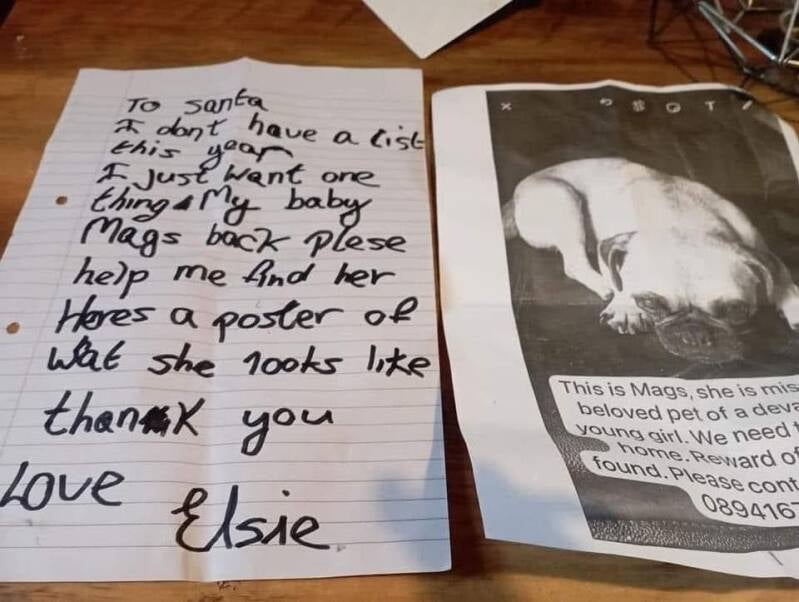 To santa
I dont have a list
this year
I just want one
thing. My baby
Mags back plese
help me find her
Heres a poster of
wat she looks like
thank you
Love Elsie
T
This is Mags, she is mis
beloved pet of a deva
young girl. We need t
home. Reward of
found. Please cont
0894167